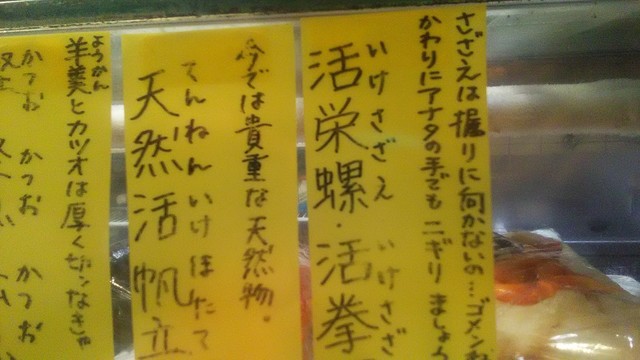 さざえは握りに向かないの…ゴメンネ
かわりにアナタの手でも ニギリ ましょう
いけさざえ いけさざ
活栄螺・活拳
今では貴重な天然物。
てんねんいけほたて
天然活帆立
ようかん
羊羹とカツオは厚く切んなきゃ
かつお かつお かつお